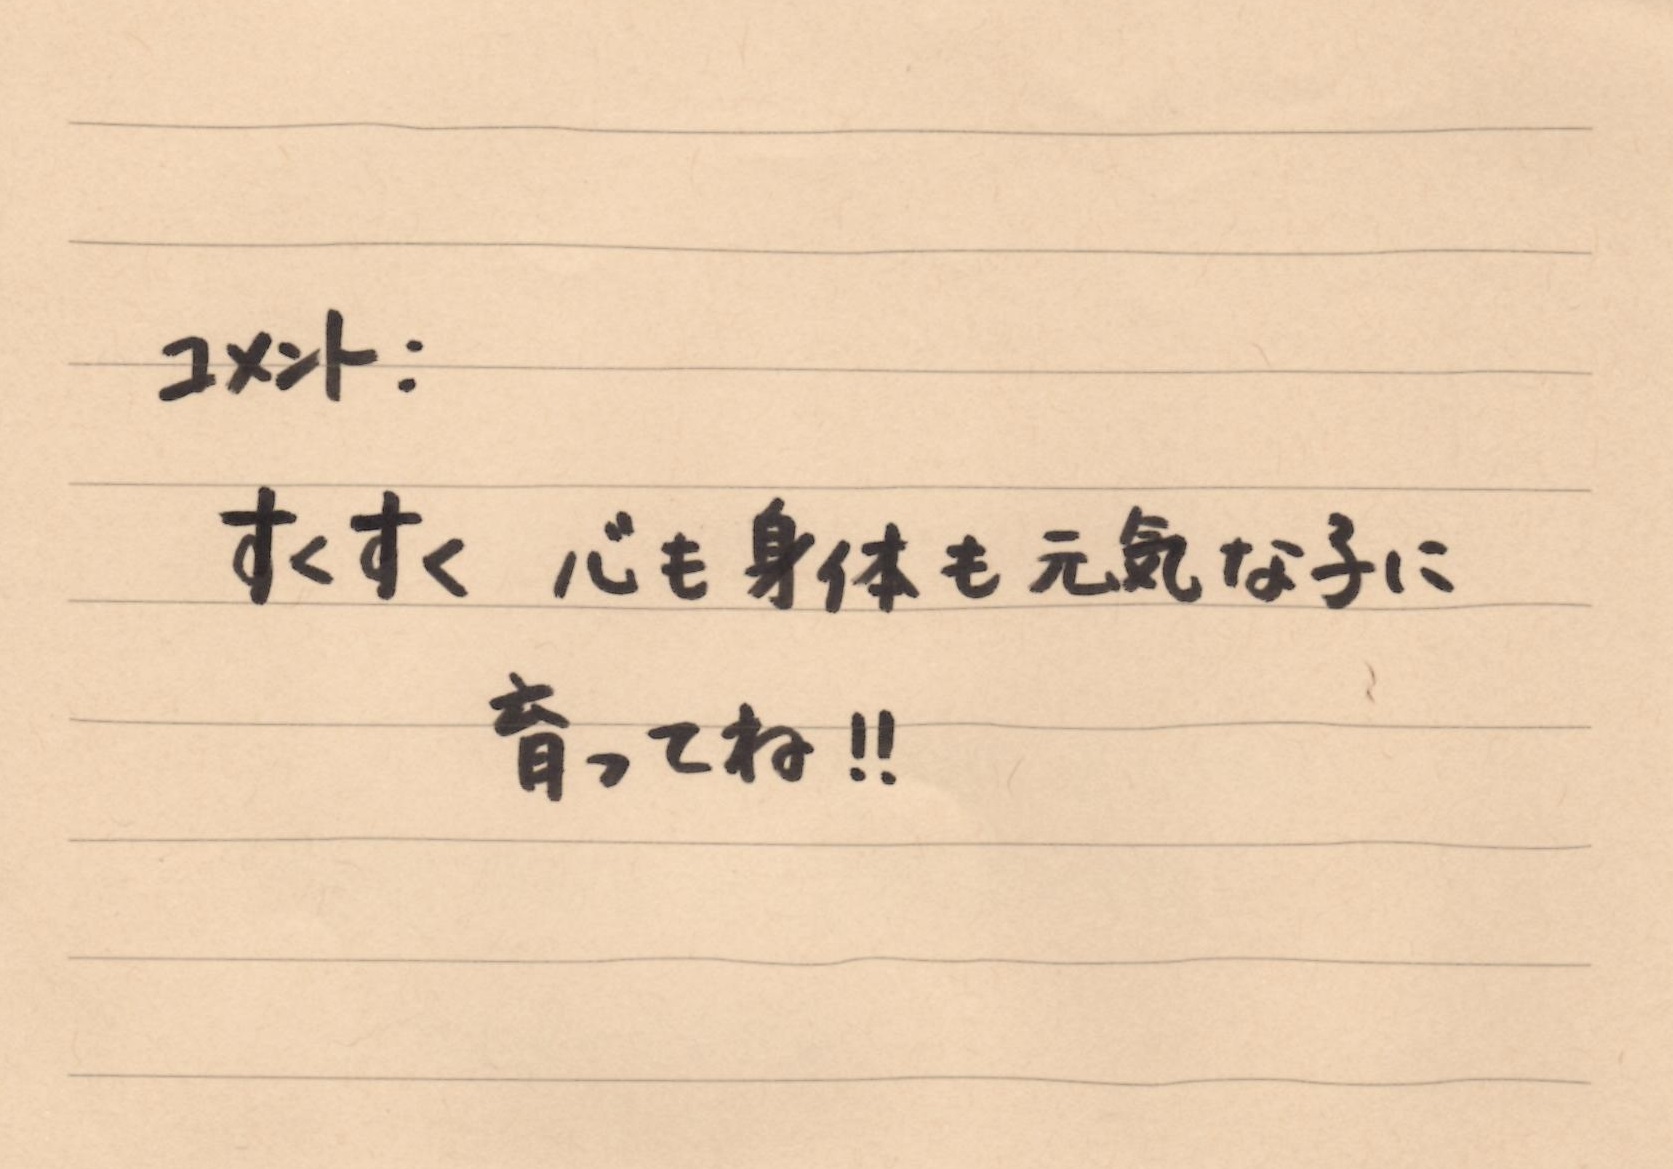 コメント:
すくすく 心も身体も元気な子に
育ってね!!